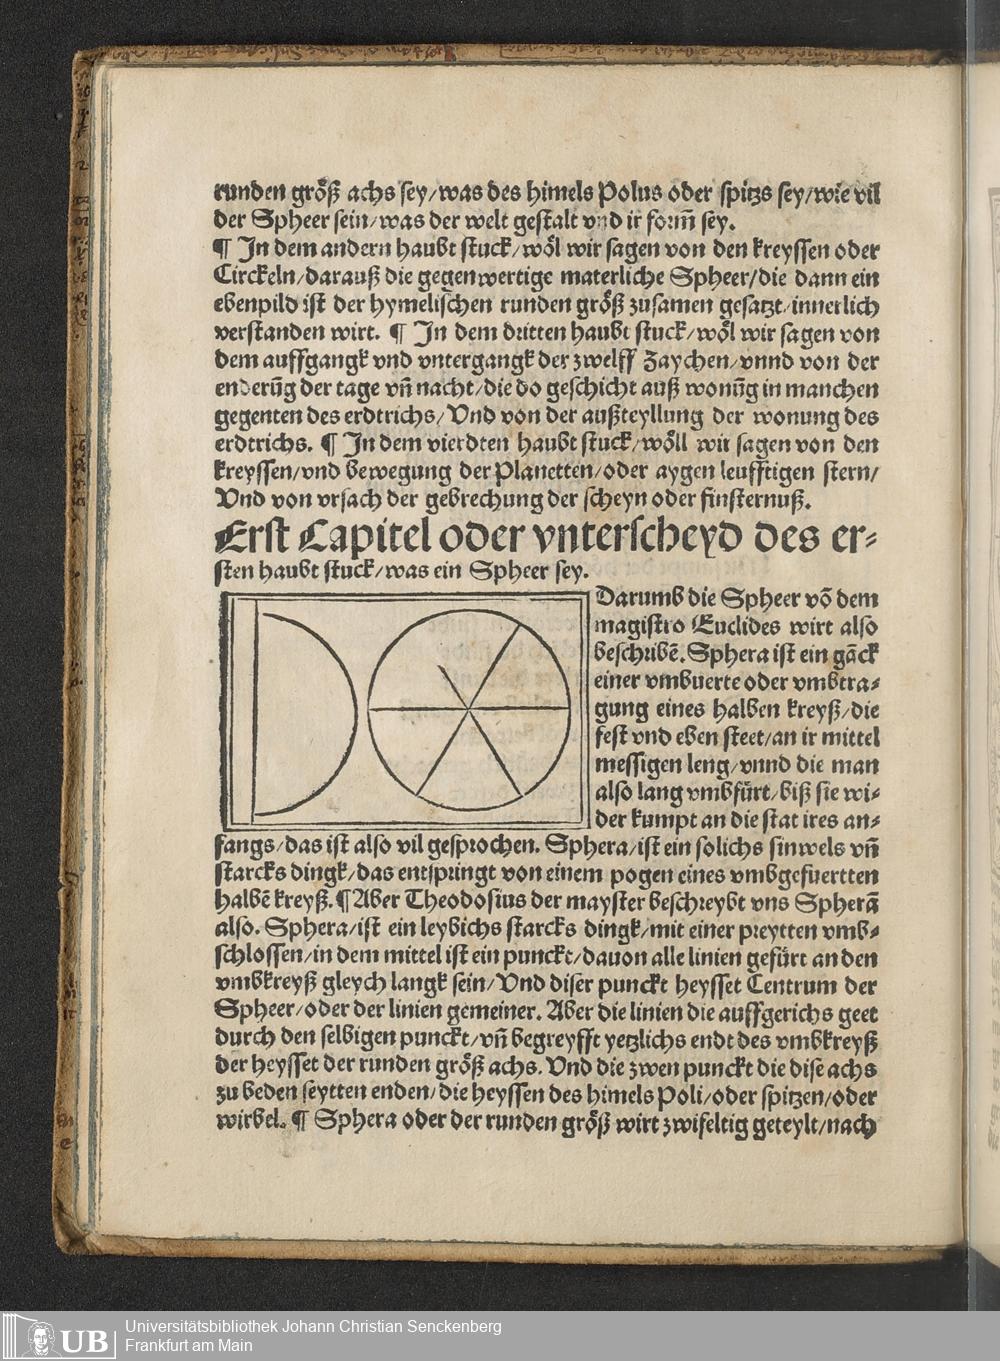 runden größ achs sey/was des himels Polus oder spitzs sey/wie vil
der Spheer sein/was der welt gestalt vnd ir form̄ sey.
¶ In dem andern haubt stuck/wöl wir sagen von den kreyssen oder
Circkeln/darauß die gegenwertige materliche Spheer/die dann ein
ebenpild ist der hymelischen runden größ zusamen gesatzt/innerlich
verstanden wirt. ¶ In dem dritten haubt stuck/wöl wir sagen von
dem auffgangk vnd vntergangk der zwelff Zaychen/vnnd von der
enderūg der tage vn̄ nacht/die do geschicht auß wonūg in manchen
gegenten des erdtrichs/Vnd von der außteyllung der wonung des
erdtrichs. ¶ In dem vierdten haubt stuck/wöll wir sagen von den
kreyssen/vnd bewegung der Planetten/oder aygen leufftigen stern/
Vnd von vrsach der gebrechung der scheyn oder finsternuß.
Erst Capitel oder vnterscheyd des er-
sten haubt stuck/was ein Spheer sey.
Darumb die Spheer vō dem
magistro Euclides wirt also
beschribē. Sphera ist ein gāck
einer vmbuerte oder vmbtra-
gung eines halben kreyß/die
fest vnd eben steet/an ir mittel
messigen leng/vnnd die man
also lang vmbfürt/biß sie wi-
der kumpt an die stat ires an-
fangs/das ist also vil gesprochen. Sphera/ist ein solichs sinwels vn̄
starcks dingk/das entspringt von einem pogen eines vmbgefuertten
halbē kreyß. ¶ Aber Theodosius der mayster beschreybt vns Spherā
also. Sphera/ist ein leybichs starcks dingk/mit einer preytten vmb-
schlossen/in dem mittel ist ein punckt/dauon alle linien gefürt an den
vmbkreyß gleych langk sein/Vnd diser punckt heysset Centrum der
Spheer/oder der linien gemeiner. Aber die linien die auffgerichs geet
durch den selbigen punckt/vn̄ begreyfft yetzlichs endt des vmbkreyß
der heysset der runden größ achs. Vnd die zwen punckt die dise achs
zu beden seytten enden/die heyssen des himels Poli/oder spitzen/oder
wirbel. ¶ Sphera oder der runden größ wirt zwifeltig geteylt/nach
UB Universitätsbibliothek Johann Christian Senckenberg
Frankfurt am Main